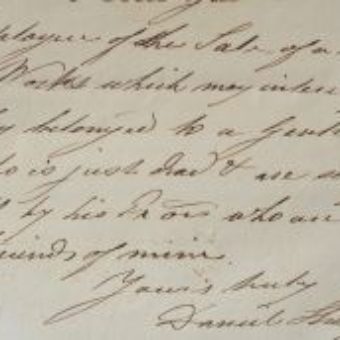 of the Sale of a
Works which may inter
belonged to a Gent
is just dead & are
by his Exors who an
friends of mine.
Yours truly
Daniel